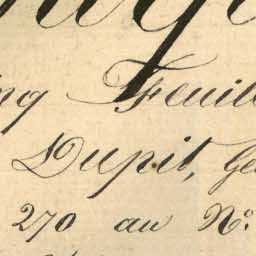 ng Feuill
Dupit, Ge
270 au No.